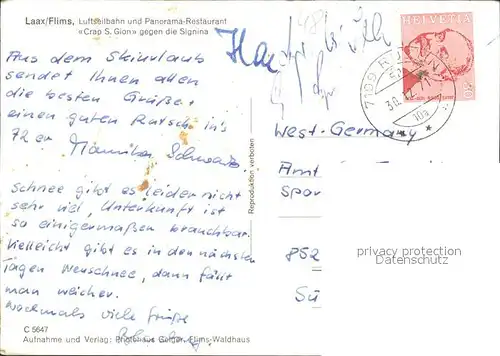 Laax/Flims, Luftseilbahn und Panorama-Restaurant
«Crap S. Gion» gegen die Signina
Aus dem Skiurlaub
sendet Ihnen allen
die besten Grüße +
einen guten Rutsch in's
72 er
Schnee gibt es leider nicht
sehr viel, Unterkunft ist
so einigermaßen brauchbar.
Vielleicht gibt es in den nächsten
Tagen Neuschnee, dann fällt
man weicher.
Nochmals viele Grüße
C 5647
Aufnahme und Verlag: Photohaus Geiger, Flims-Waldhaus
Reproduktion verboten
HELVETIA
7109
30.12.71
West-Germany
Amt
Spor
852
privacy protection
Datenschutz